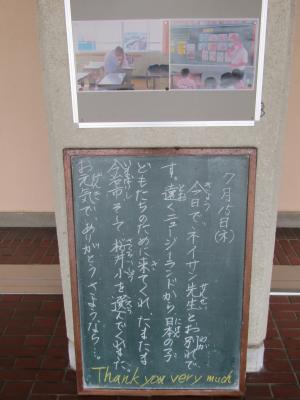 7月16日(木)
今日で、ネイサン先生とお別れで
す。遠いニュージーランドから日本の子
どもたちのために来てくれました。
今治市そして桜井小を選んでくれました。
お元気で、ありがとう さようなら…。
Thank you very much